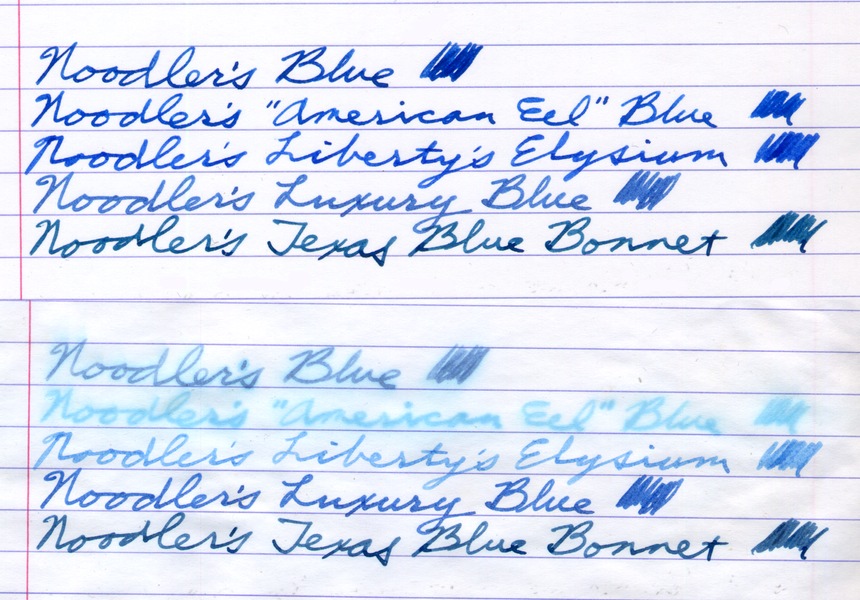 Noodler's Blue
Noodler's "American Eel" Blue
Noodler's Liberty's Elysium
Noodler's Luxury Blue
Noodler's Texas Blue Bonnet
Noodler's Blue
Noodler's "American Eel" Blue
Noodler's Liberty's Elysium
Noodler's Luxury Blue
Noodler's Texas Blue Bonnet